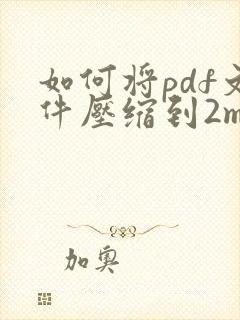 如何将pdf文
件壓缩到2m
加奥